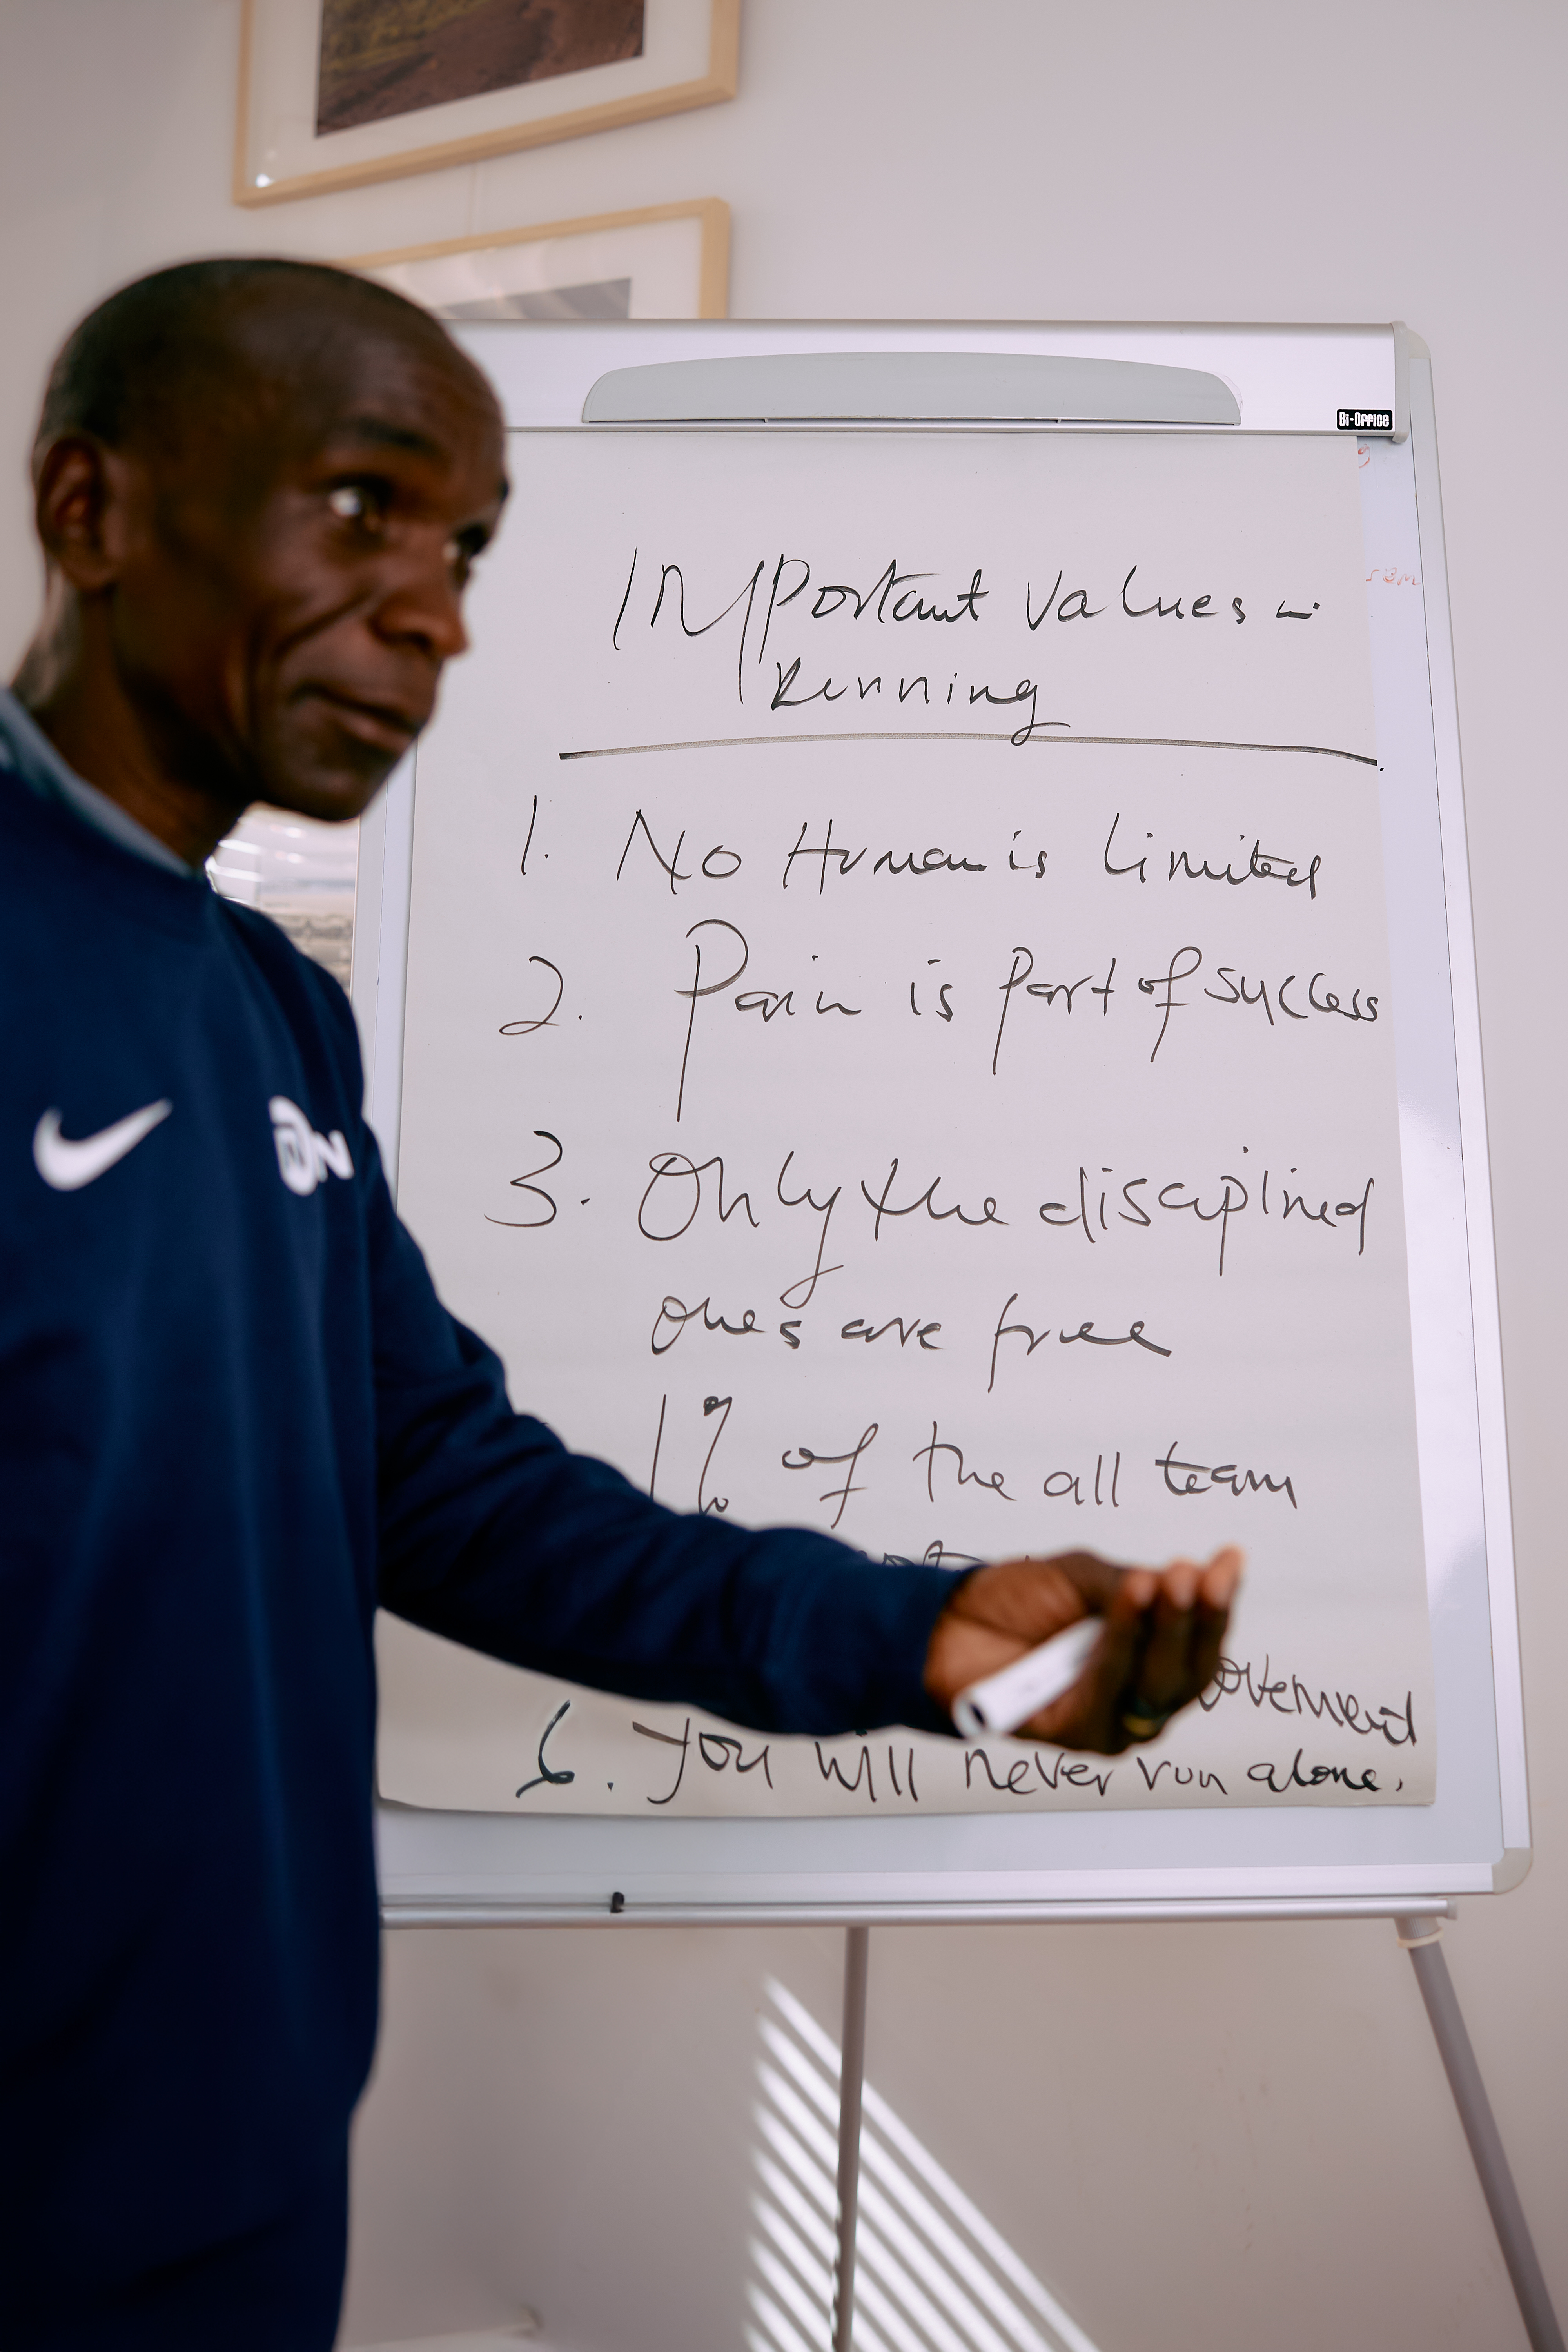 Bi-Office
Important Values in
Running
1. No Human is Limited
2. Pain is part of success
3. Only the disciplined
ones are free
1% of the all team
6. You will never run alone.